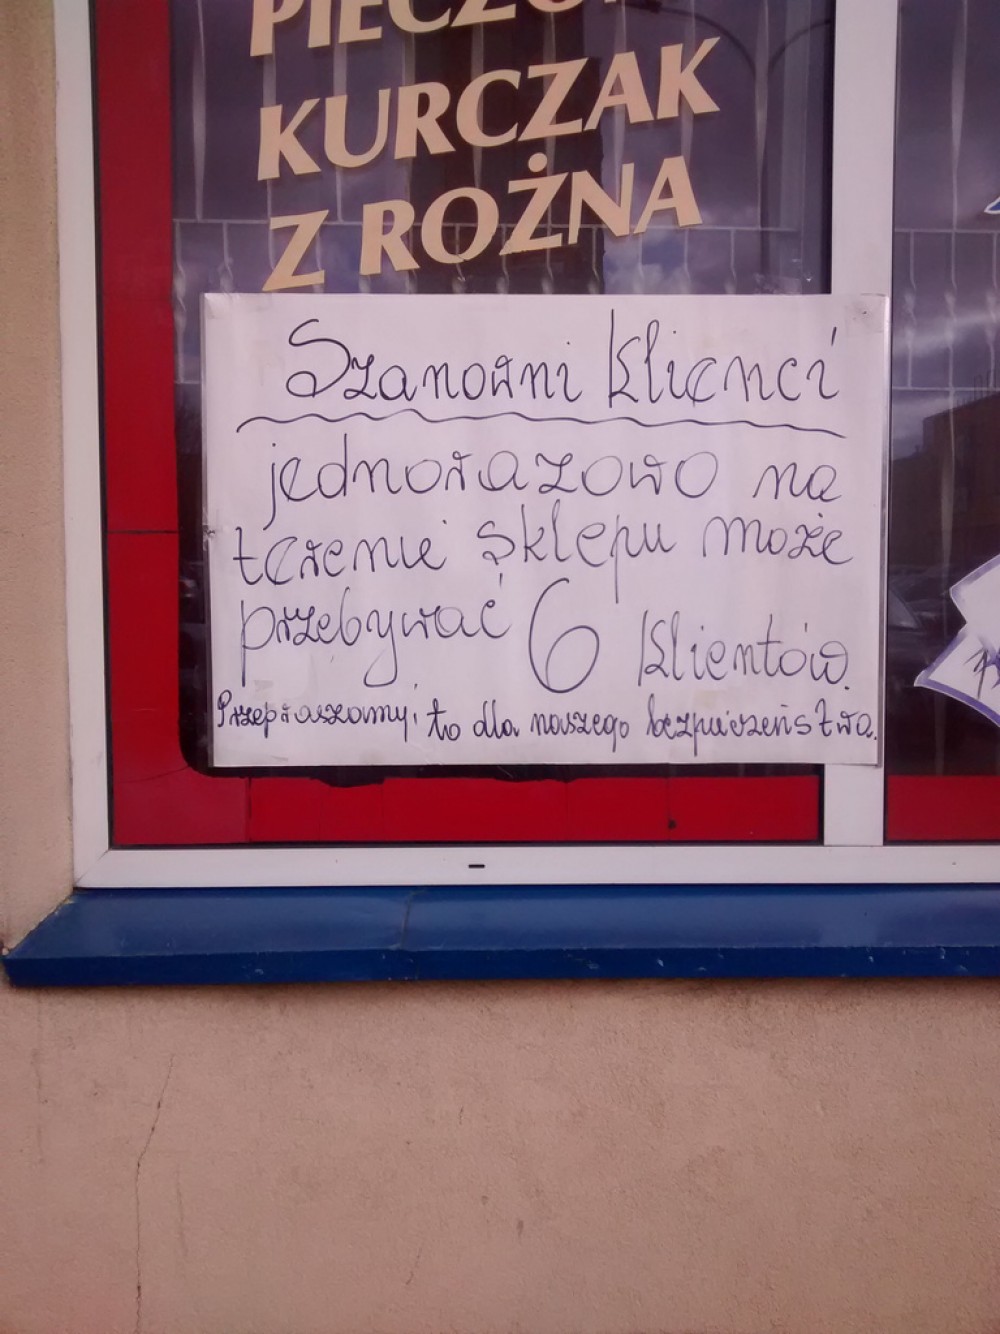 KURCZAK
Z ROŻNA
Szanowni Klienci
jednorazowo na
terenie sklepu może
przebywać 6 klientów.
Przepraszamy, to dla naszego bezpieczeństwa.